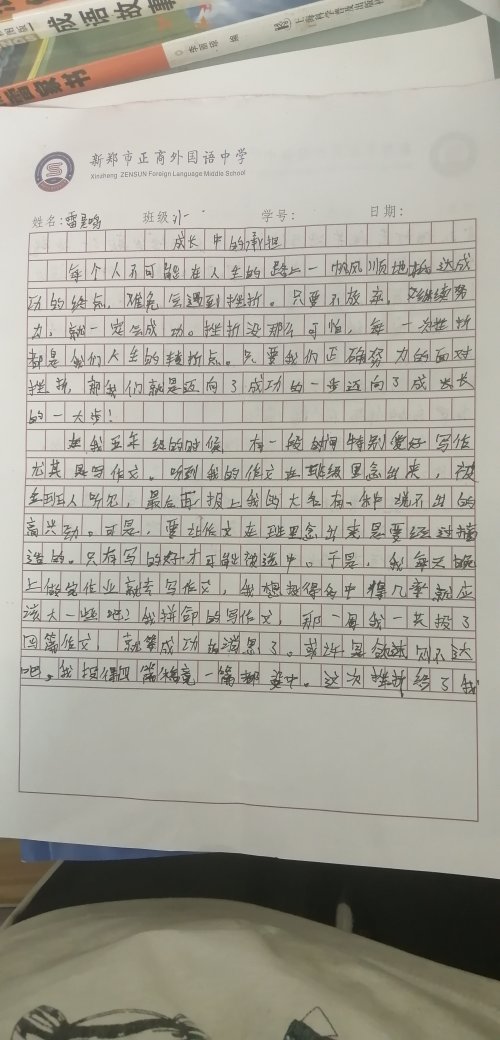 成语故事
李丽琼 编
上海科学普及出版社
家书
新郑市正商外国语中学
Xinzheng ZENSUN Foreign Language Middle School
姓名: 班级: 学号: 日期:
成长中的承担
每个人不可能在人生的路上一帆风顺地抵达成
功的终点,难免会遇到挫折。只要不放弃,继续努
力,就一定会成功。挫折没那么可怕,每一次挫折
都是我们人生的转折点。只要我们正确努力的面对
挫折,那我们就是迈向了成功的一步迈向了成长
的一大步!
在我五年级的时候,有一段时间特别爱好写作
尤其是写作文。听到我的作文在班级里念出来,被
全班人听见,最后再报上我的大名有一种说不出的
高兴劲。可是,要让作文在班里念出来是要经过
选的。只有写的好才可能被选中。于是,我每天晚
上做完作业就去写作文,我想投得多中得几率就应
该大一些吧?我拼命的写作文,那一周我一共投了
四篇作文,就等成功的消息了。或许是
吧。我投得四篇稿竟一篇都没中。这次挫折给了我